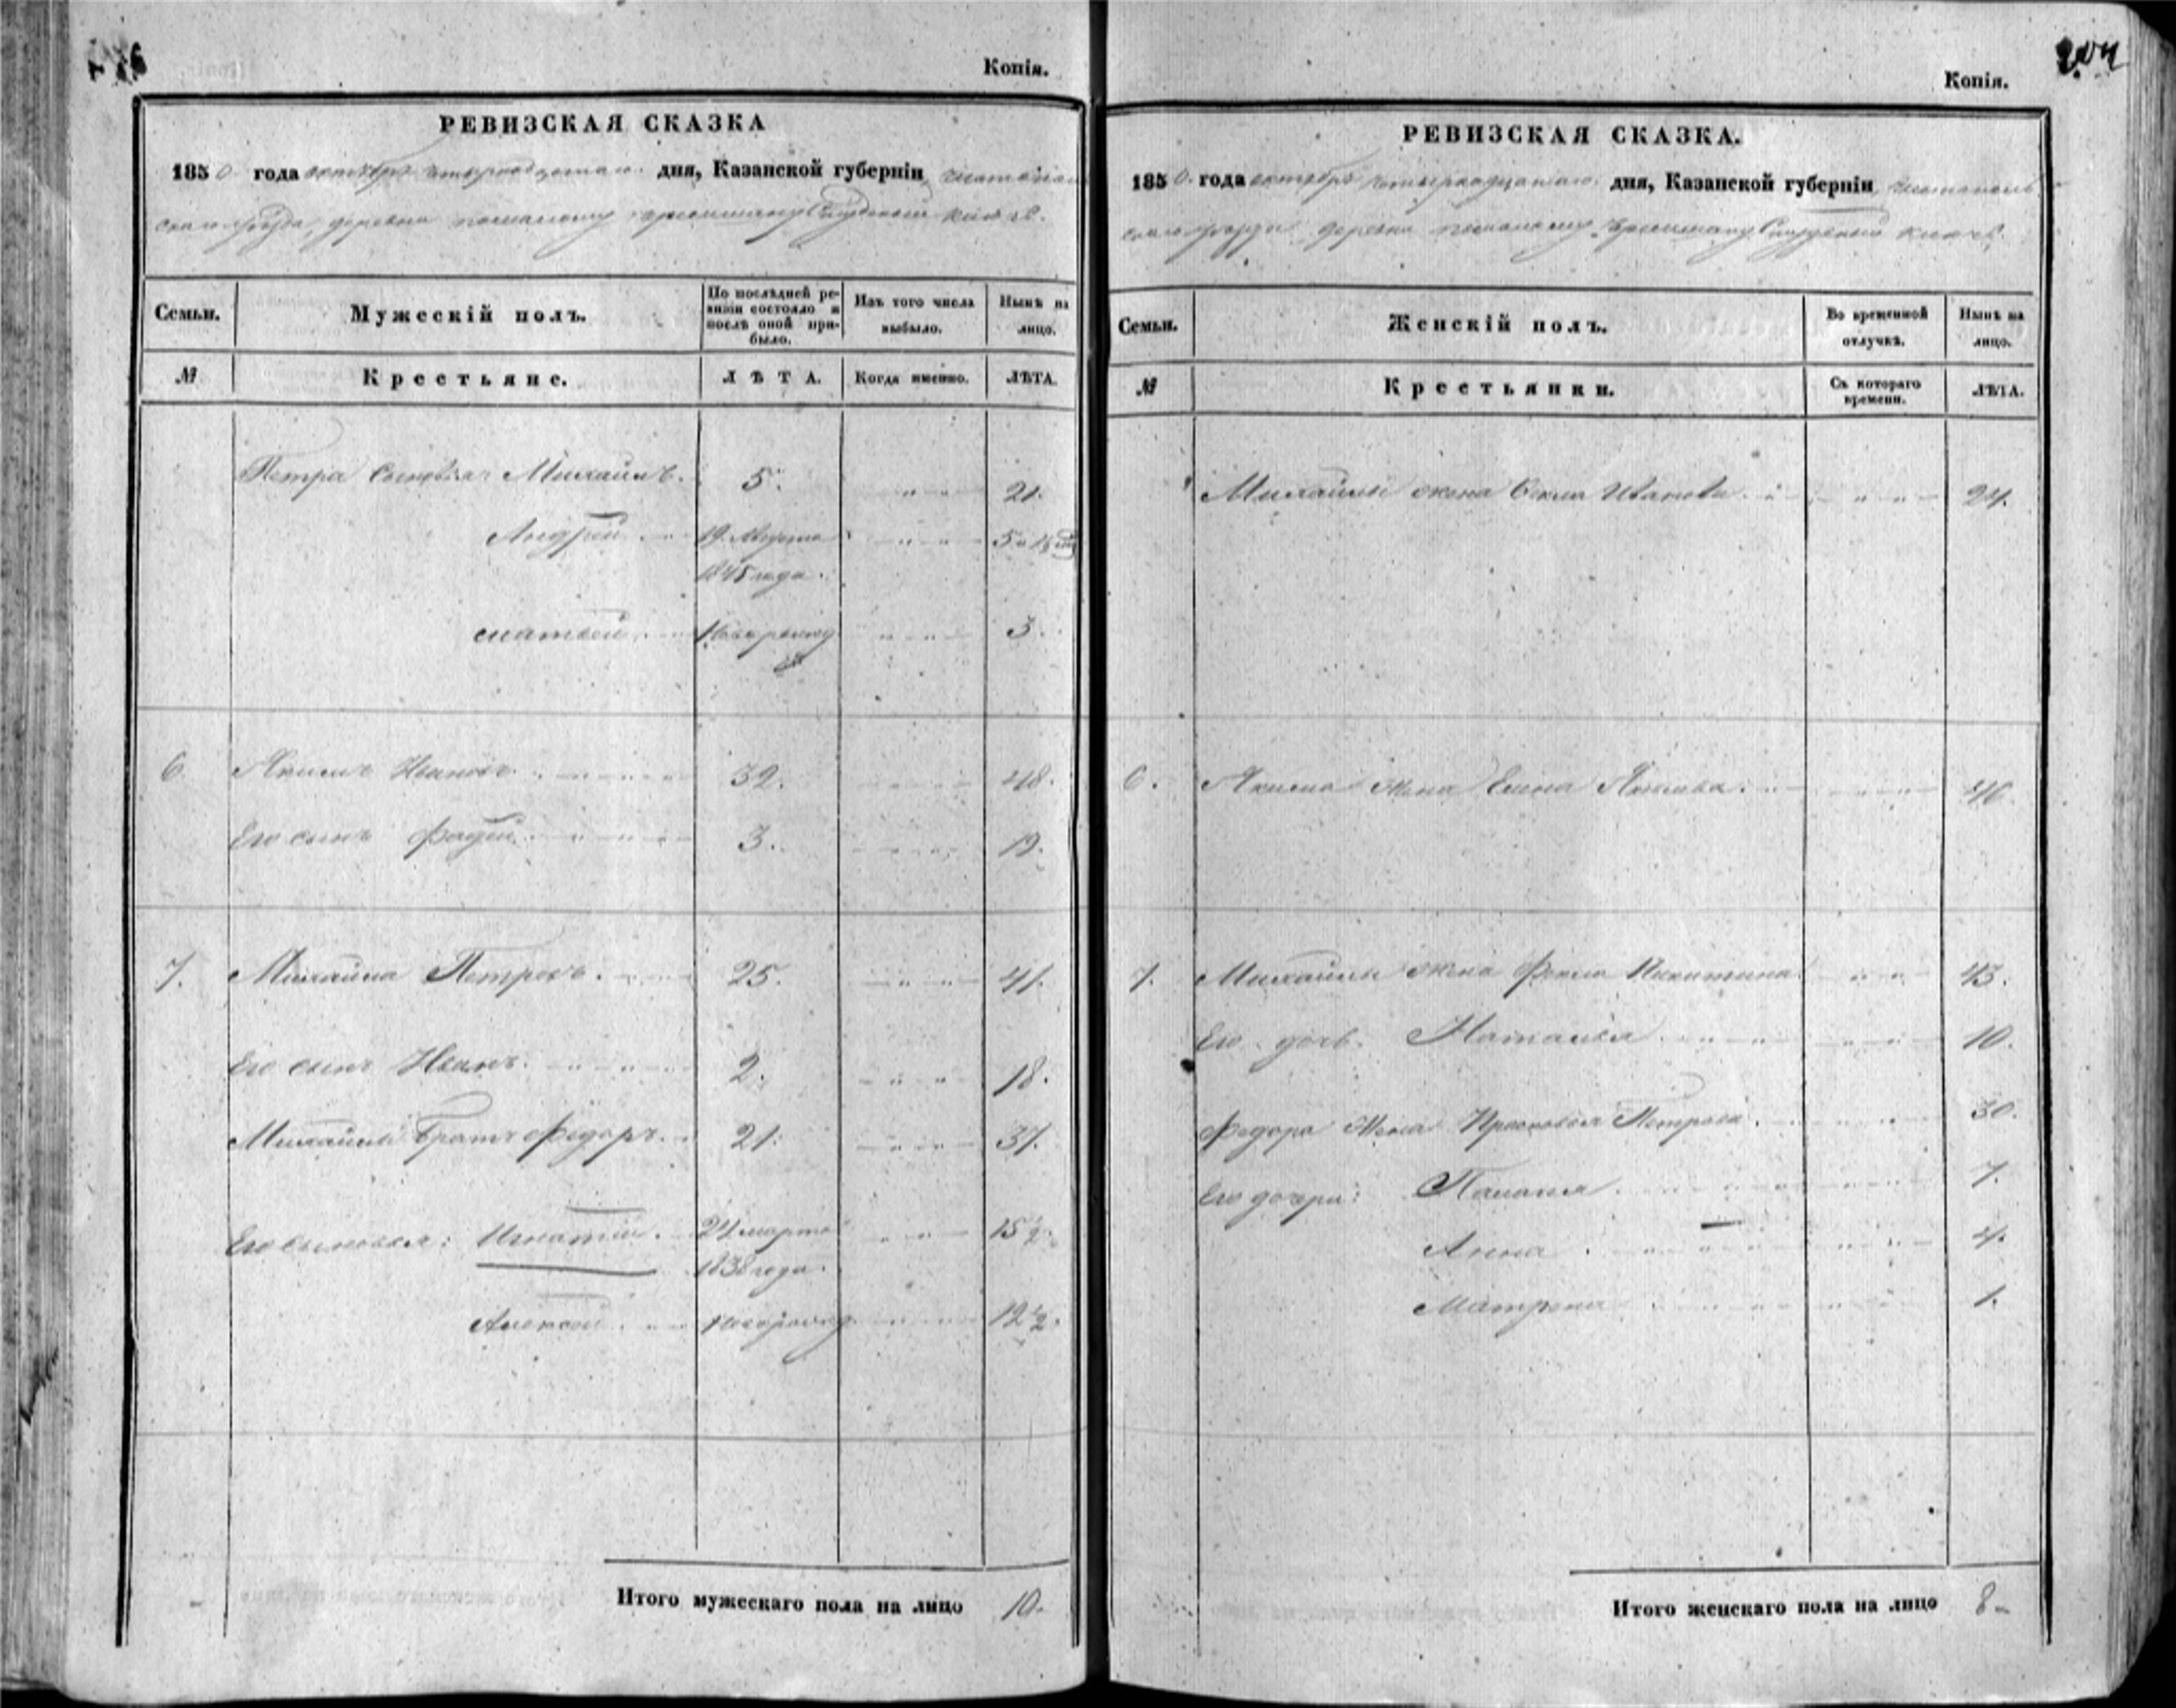 Копія.
РЕВИЗСКАЯ СКАЗКА
1850 года октября четырнадцатаго дня, Казанской губерніи
Семьи.
Мужескій полъ.
По послѣдней ре-
визіи состояло и
послѣ оной при-
было.
Изъ того числа
выбыло.
Нынѣ на
лицо.
№
Крестьяне.
ЛѢТА.
Когда именно.
ЛѢТА.
Петра сыновья Михайлъ. 5. 21.
Андрей 19 Августа 5
1845 года.
Матвей 3.
6. Якимъ Ивановъ. 32. 48.
Его сынъ Фадей. 3. 19.
7. Михайла Петровъ. 25. 41.
Его сынъ Иванъ. 2. 18.
Михайлы братъ Федоръ. 21. 37.
Его сыновья: Игнатій. 24 марта
1838 года.
Алексей. новорожд. 12 1/2.
Итого мужескаго пола на лицо 10.
204
Копія.
РЕВИЗСКАЯ СКАЗКА.
1850. года октября четырнадцатаго дня, Казанской губерніи
Семьи.
Женскій полъ.
Во временной
отлучкѣ.
Нынѣ на
лицо.
№
Крестьянки.
Съ котораго
времени.
ЛѢТА.
Михайлы жена Иванова 24.
6. Якима жена Елена 46.
7. Михайлы жена Фекла Никитина 43.
Его дочь. Наталья 10.
Федора жена Прасковья Петрова. 30.
Его дочери: Палагея 7.
Анна 4.
Матрена 1.
Итого женскаго пола на лицо 8